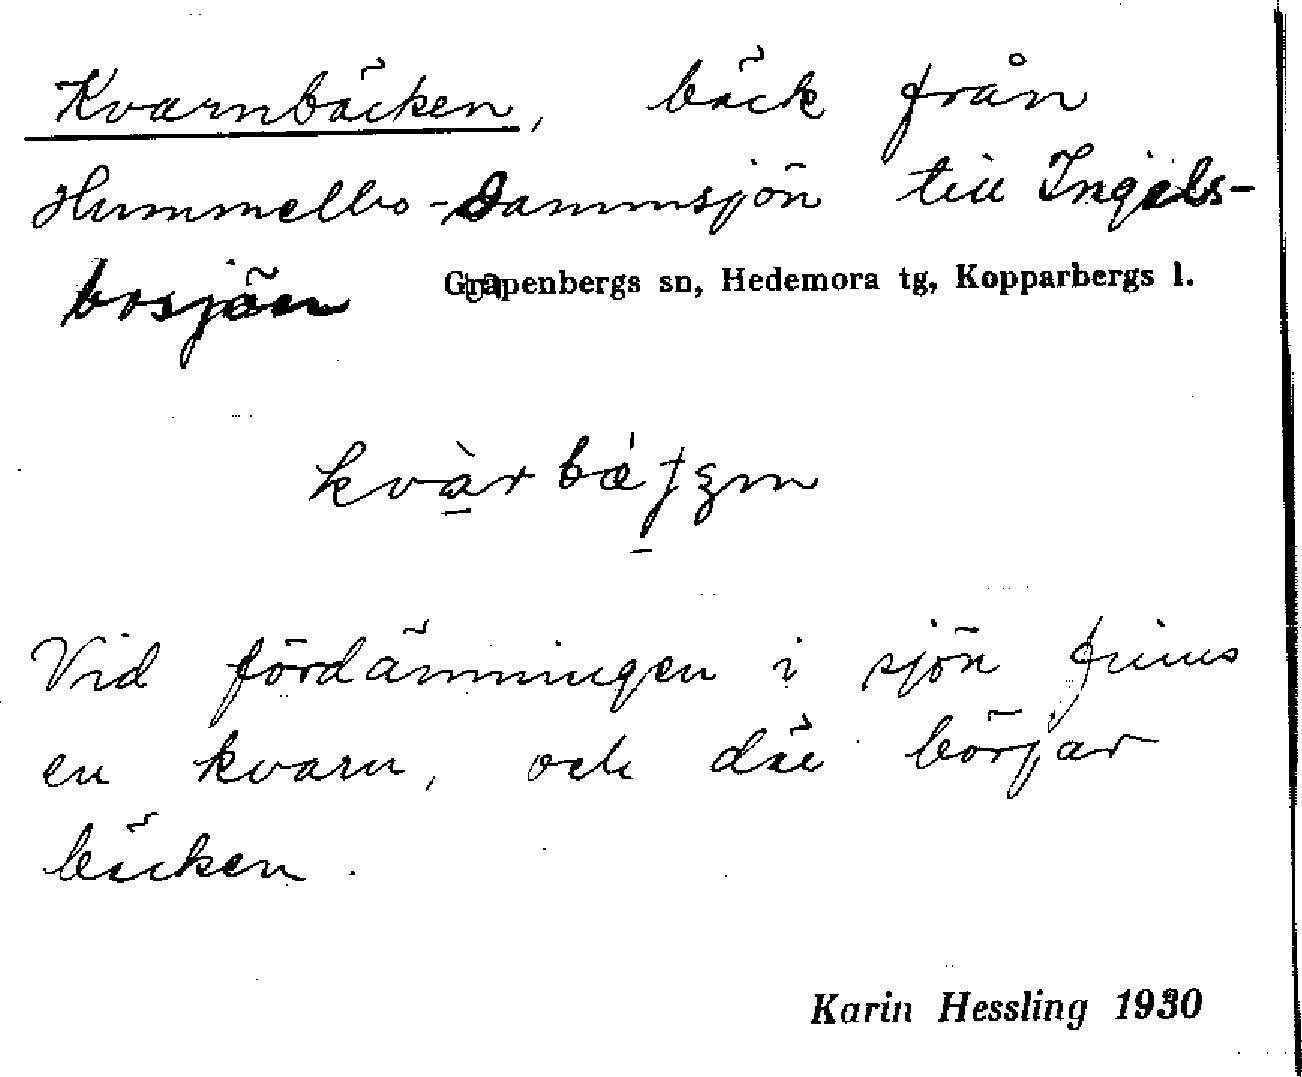 Kvarnbäcken, bäck från
Hummelbo-Dammsjön till Ingels-
bosjön
Garpenbergs sn, Hedemora tg, Kopparbergs l.
Vid fördämningen i sjön finns
en kvarn, och där börjar
bäcken.
Karin Hessling 1930